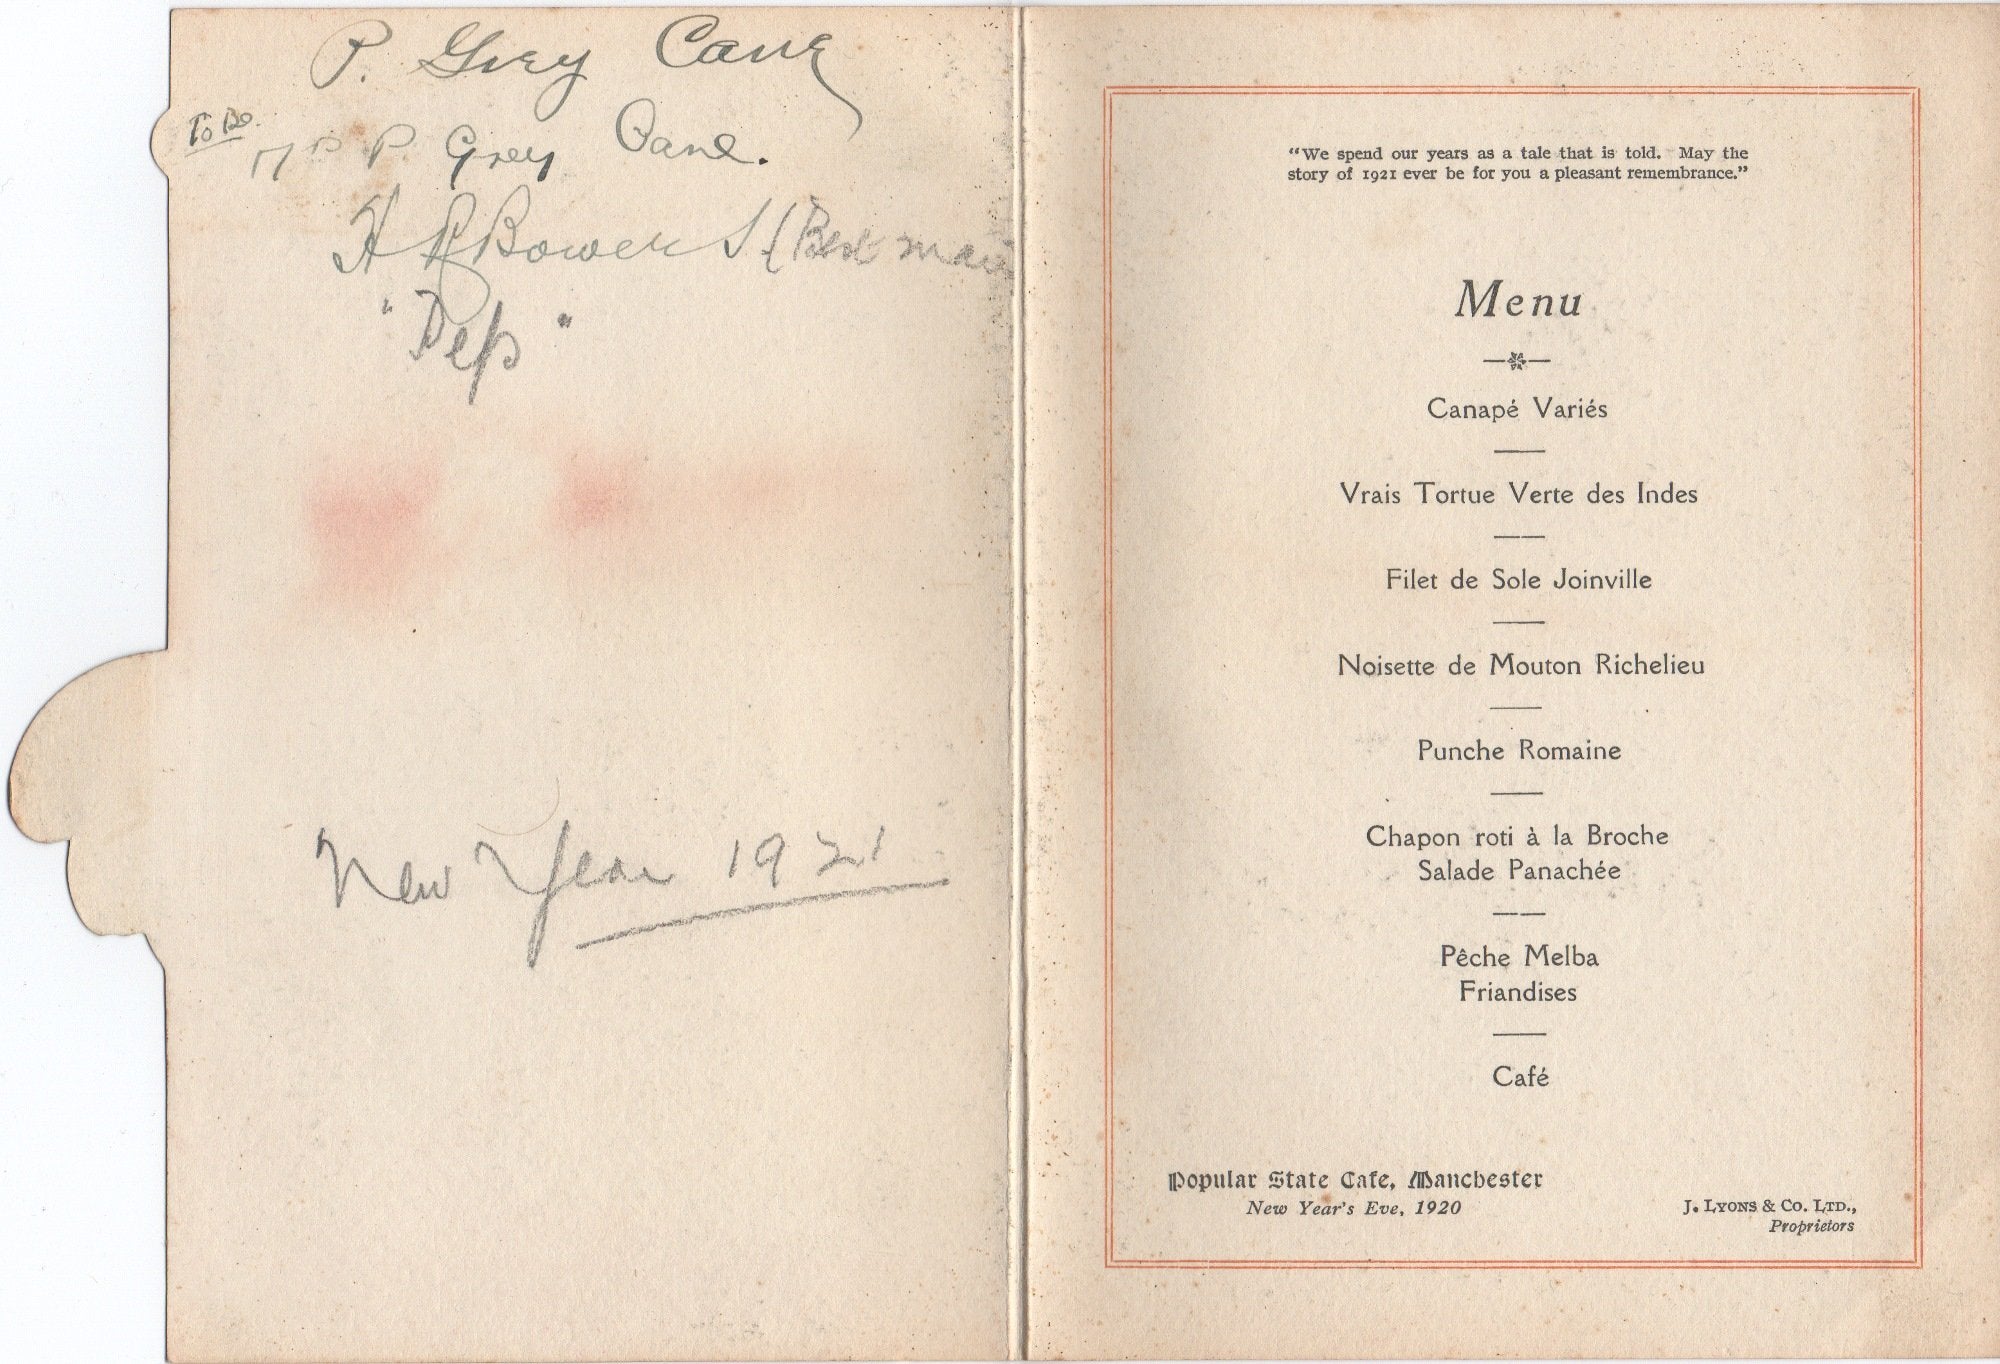 P. Grey Cane
To Be.
Mrs P. Grey Cane.
H R Bowers (Best man
"Pep"
New Year 1921
"We spend our years as a tale that is told. May the
story of 1921 ever be for you a pleasant remembrance."
Menu
Canapé Variés
Vrais Tortue Verte des Indes
Filet de Sole Joinville
Noisette de Mouton Richelieu
Punche Romaine
Chapon roti à la Broche
Salade Panachée
Pêche Melba
Friandises
Café
Popular State Cafe, Manchester
New Year's Eve, 1920
J. Lyons & Co. Ltd.,
Proprietors